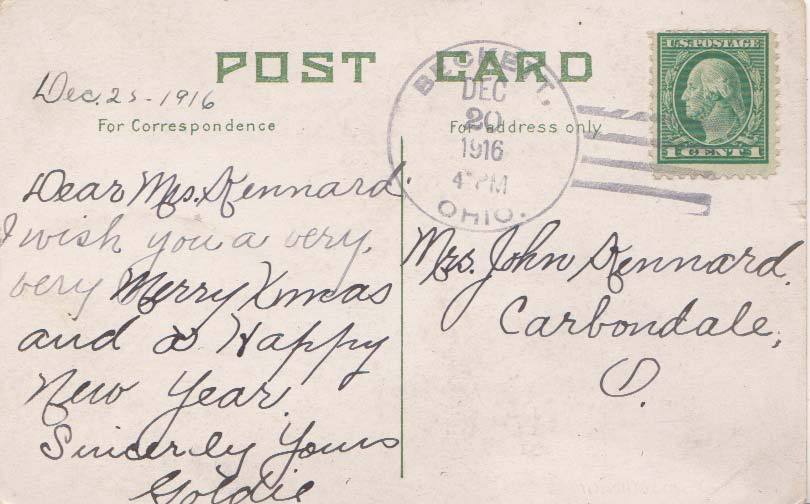 POST CARD
Dec. 25-1916
For Correspondence
For address only
BECKETT,
DEC
20
1916
4 PM
OHIO.
U.S. POSTAGE
1 CENT 1
Dear Mrs. Kennard.
I wish you a very,
very Merry Xmas
and a Happy
New Year.
Sincerely Yours
Goldie
Mrs. John Kennard.
Carbondale,
O.